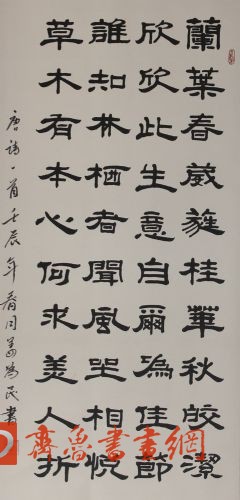 蘭葉春葳蕤桂華秋皎潔
欣欣此生意自爾為佳節
誰知林栖者聞風坐相悅
草木有本心何求美人折
唐詩一首壬辰年春月姜為民書
齊魯書畫網